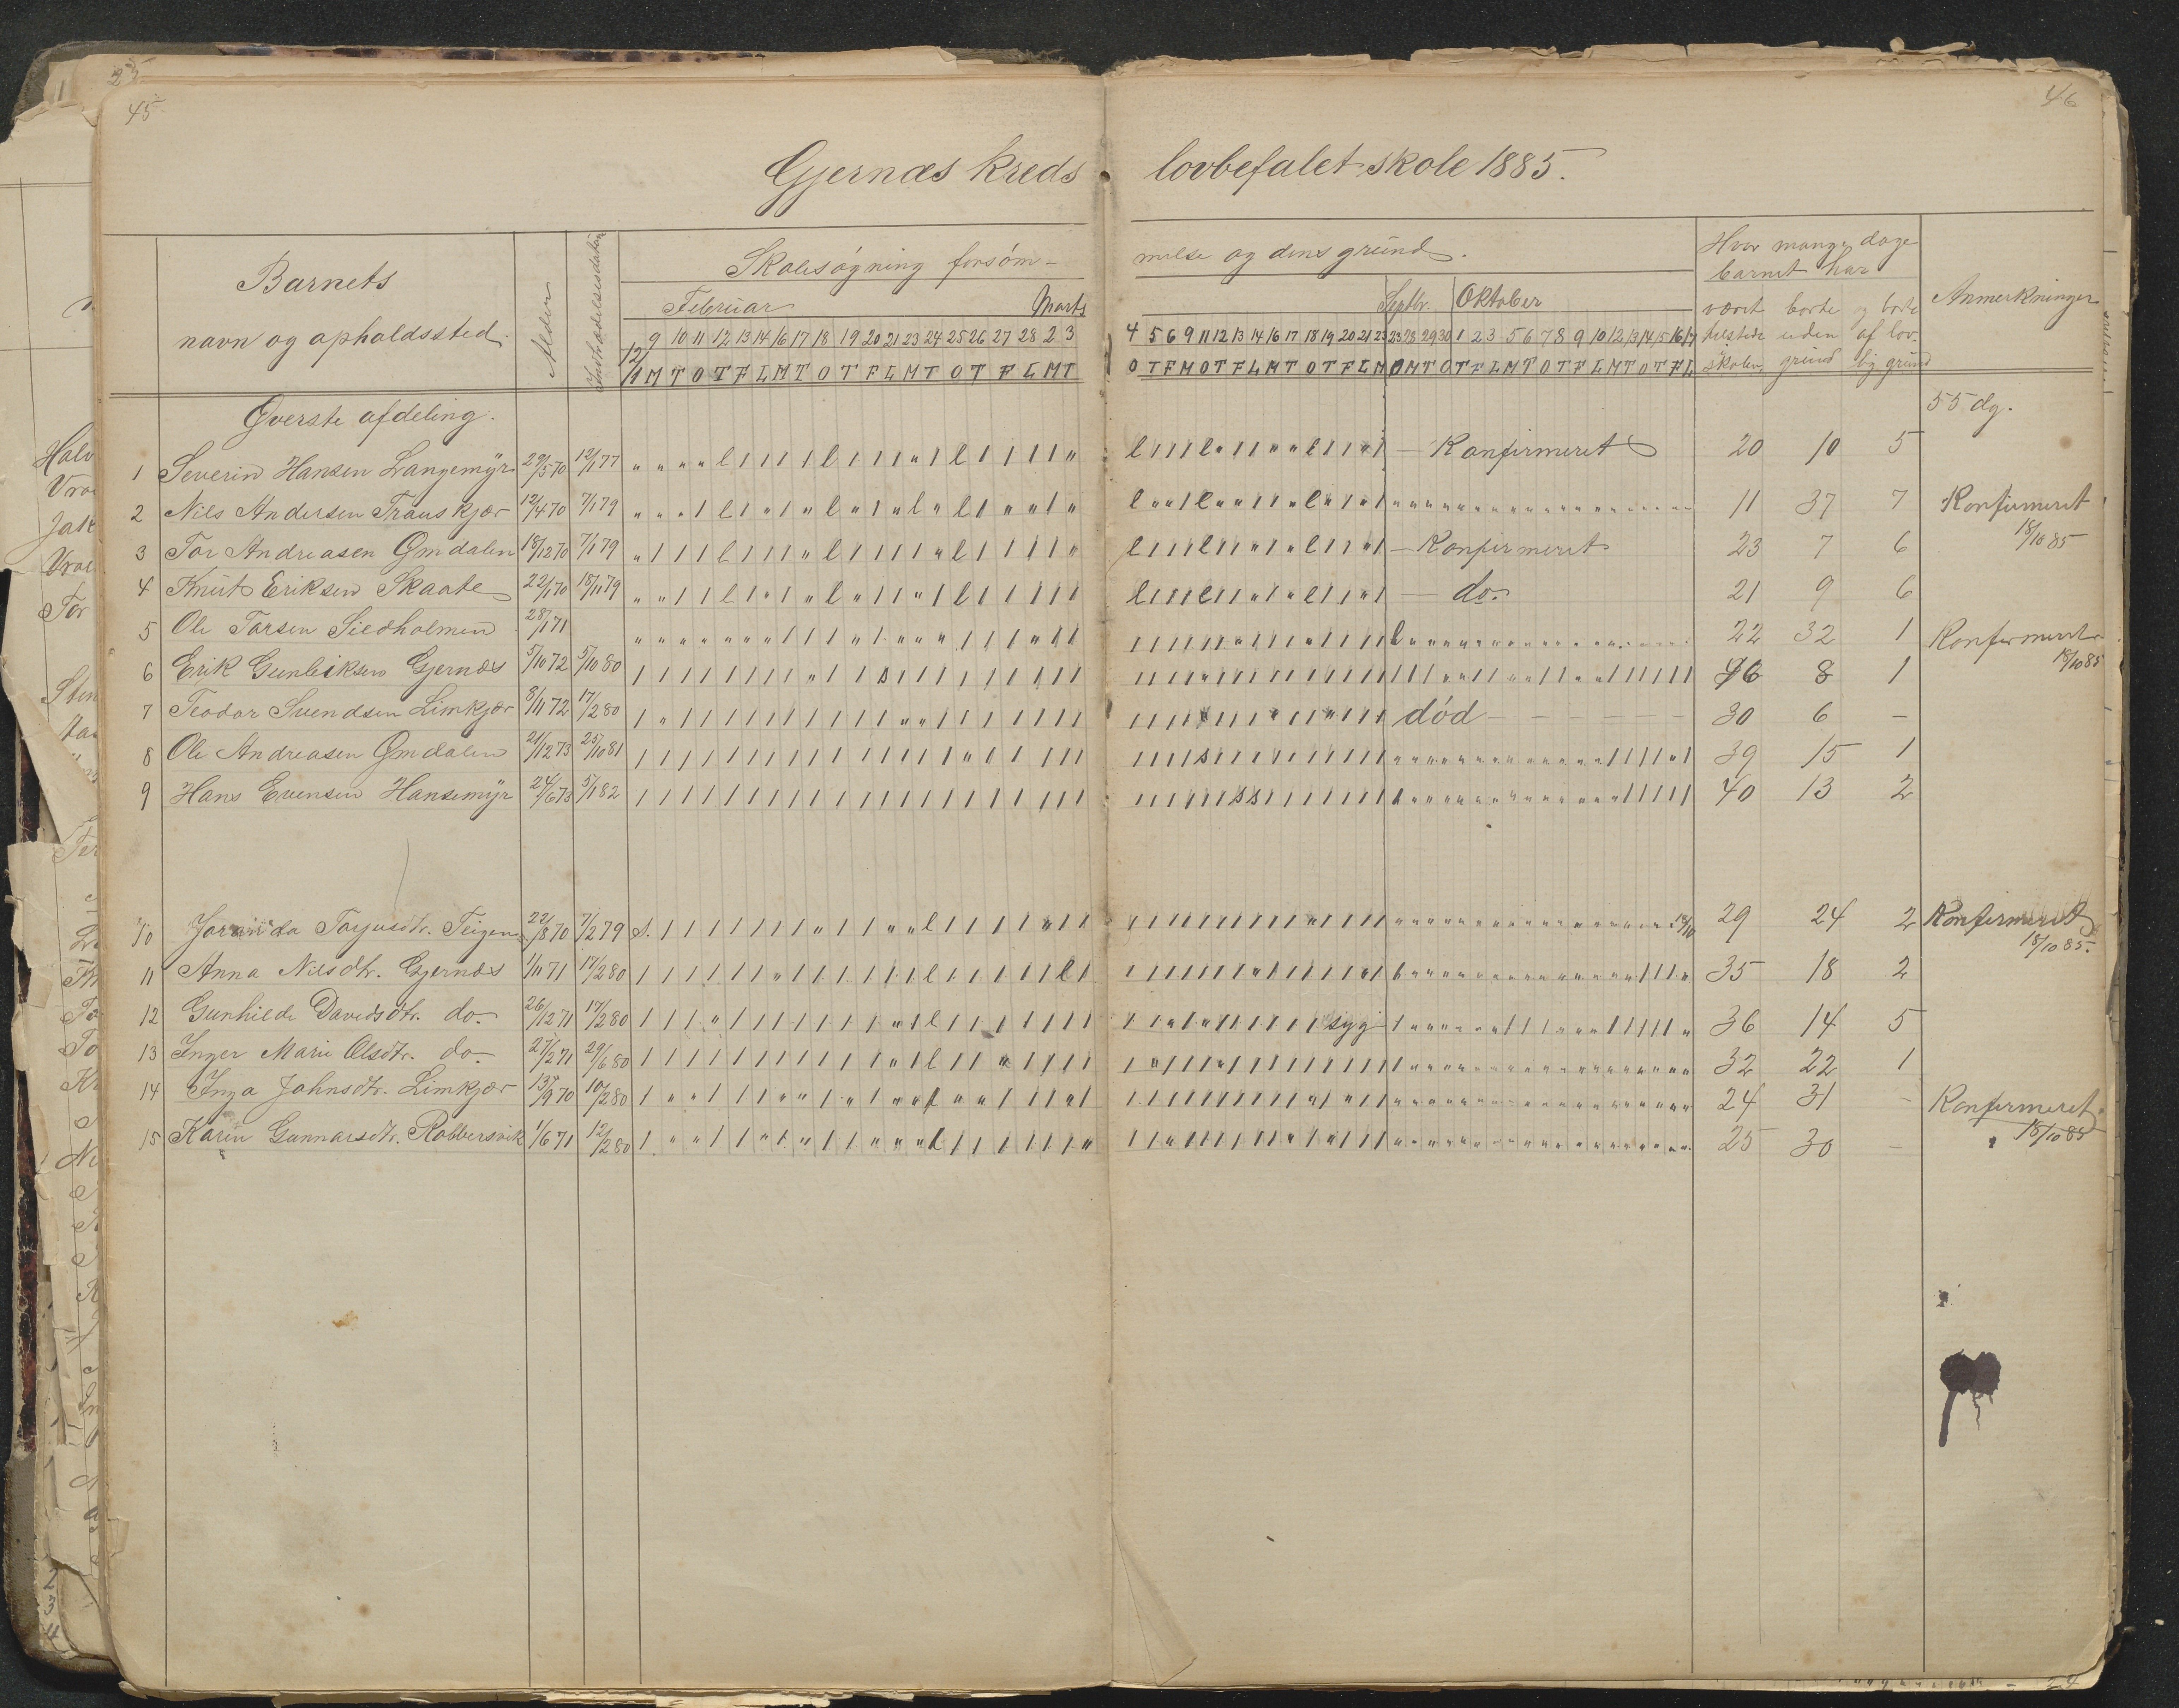 25
45 46
Gjernæs kreds lovbefalet skole 1885.
Barnets
navn og opholdssted.
Alder
Skolesøgning forsøm- melse og dens grund.
Hvor mange dage
barnet har
været tilstede skolen
borte uden grund
og borte af lovlig grund
Anmerkninger
Februar Marts Septbr. Oktober
9 10 11 12 13 14 16 17 18 19 20 21 23 24 25 26 27 28 2 3
4 5 6 9 11 12 13 14 16 17 18 19 20 21 23 28 29 30 1 2 3 5 6 7 8 9 10 12 13 14 15 16 17
M T O T F L M T O T F L M T O T F L M T
O T F M O T F L M T O T F L M O M T O T F L M T O T F L M T O T F L
Øverste afdeling. 55 dg.
1 Severin Hansen Langemyr 29/5 70 12/1 77 — Konfirmeret 20 10 5
2 Nils Andersen Trauskjær 12/4 70 7/1 79 11 37 7 Konfirmeret 18/10 85
3 Tor Andreasen Ømdalen 18/12 70 7/1 79 — Konfirmeret 23 7 6
4 Knut Eriksen Skaate 22/1 70 18/11 79 — do. 21 9 6
5 Ole Torsen Siedholmen 28/1 71 22 32 1 Konfirmeret 18/10 85
6 Erik Gunleiksen Gjernæs 5/10 72 5/10 80 46 8 1
7 Teodor Svendsen Limkjær 8/11 72 17/2 80 død 30 6 —
8 Ole Andreasen Ømdalen 21/12 73 25/10 81 39 15 1
9 Hans Evensen Hansemyr 24/6 73 5/1 82 40 13 2
10 Torjusdtr. Teigen 22/8 70 7/2 79 18/10 29 24 2 Konfirmeret 18/10 85.
11 Anna Nilsdtr. Gjernæs 1/11 71 17/2 80 35 18 2
12 Gunhilde Davidsdtr. do. 26/12 71 17/2 80 syg 36 14 5
13 Inger Marie Olsdtr. do. 27/2 71 29/6 80 32 22 1
14 Inga Johnsdtr. Limkjær 13/9 70 10/2 80 24 31 - Konfirmeret 18/10 85
15 Karen Gunnarsdtr. Robbersvik 1/6 71 12/2 80 25 30 —